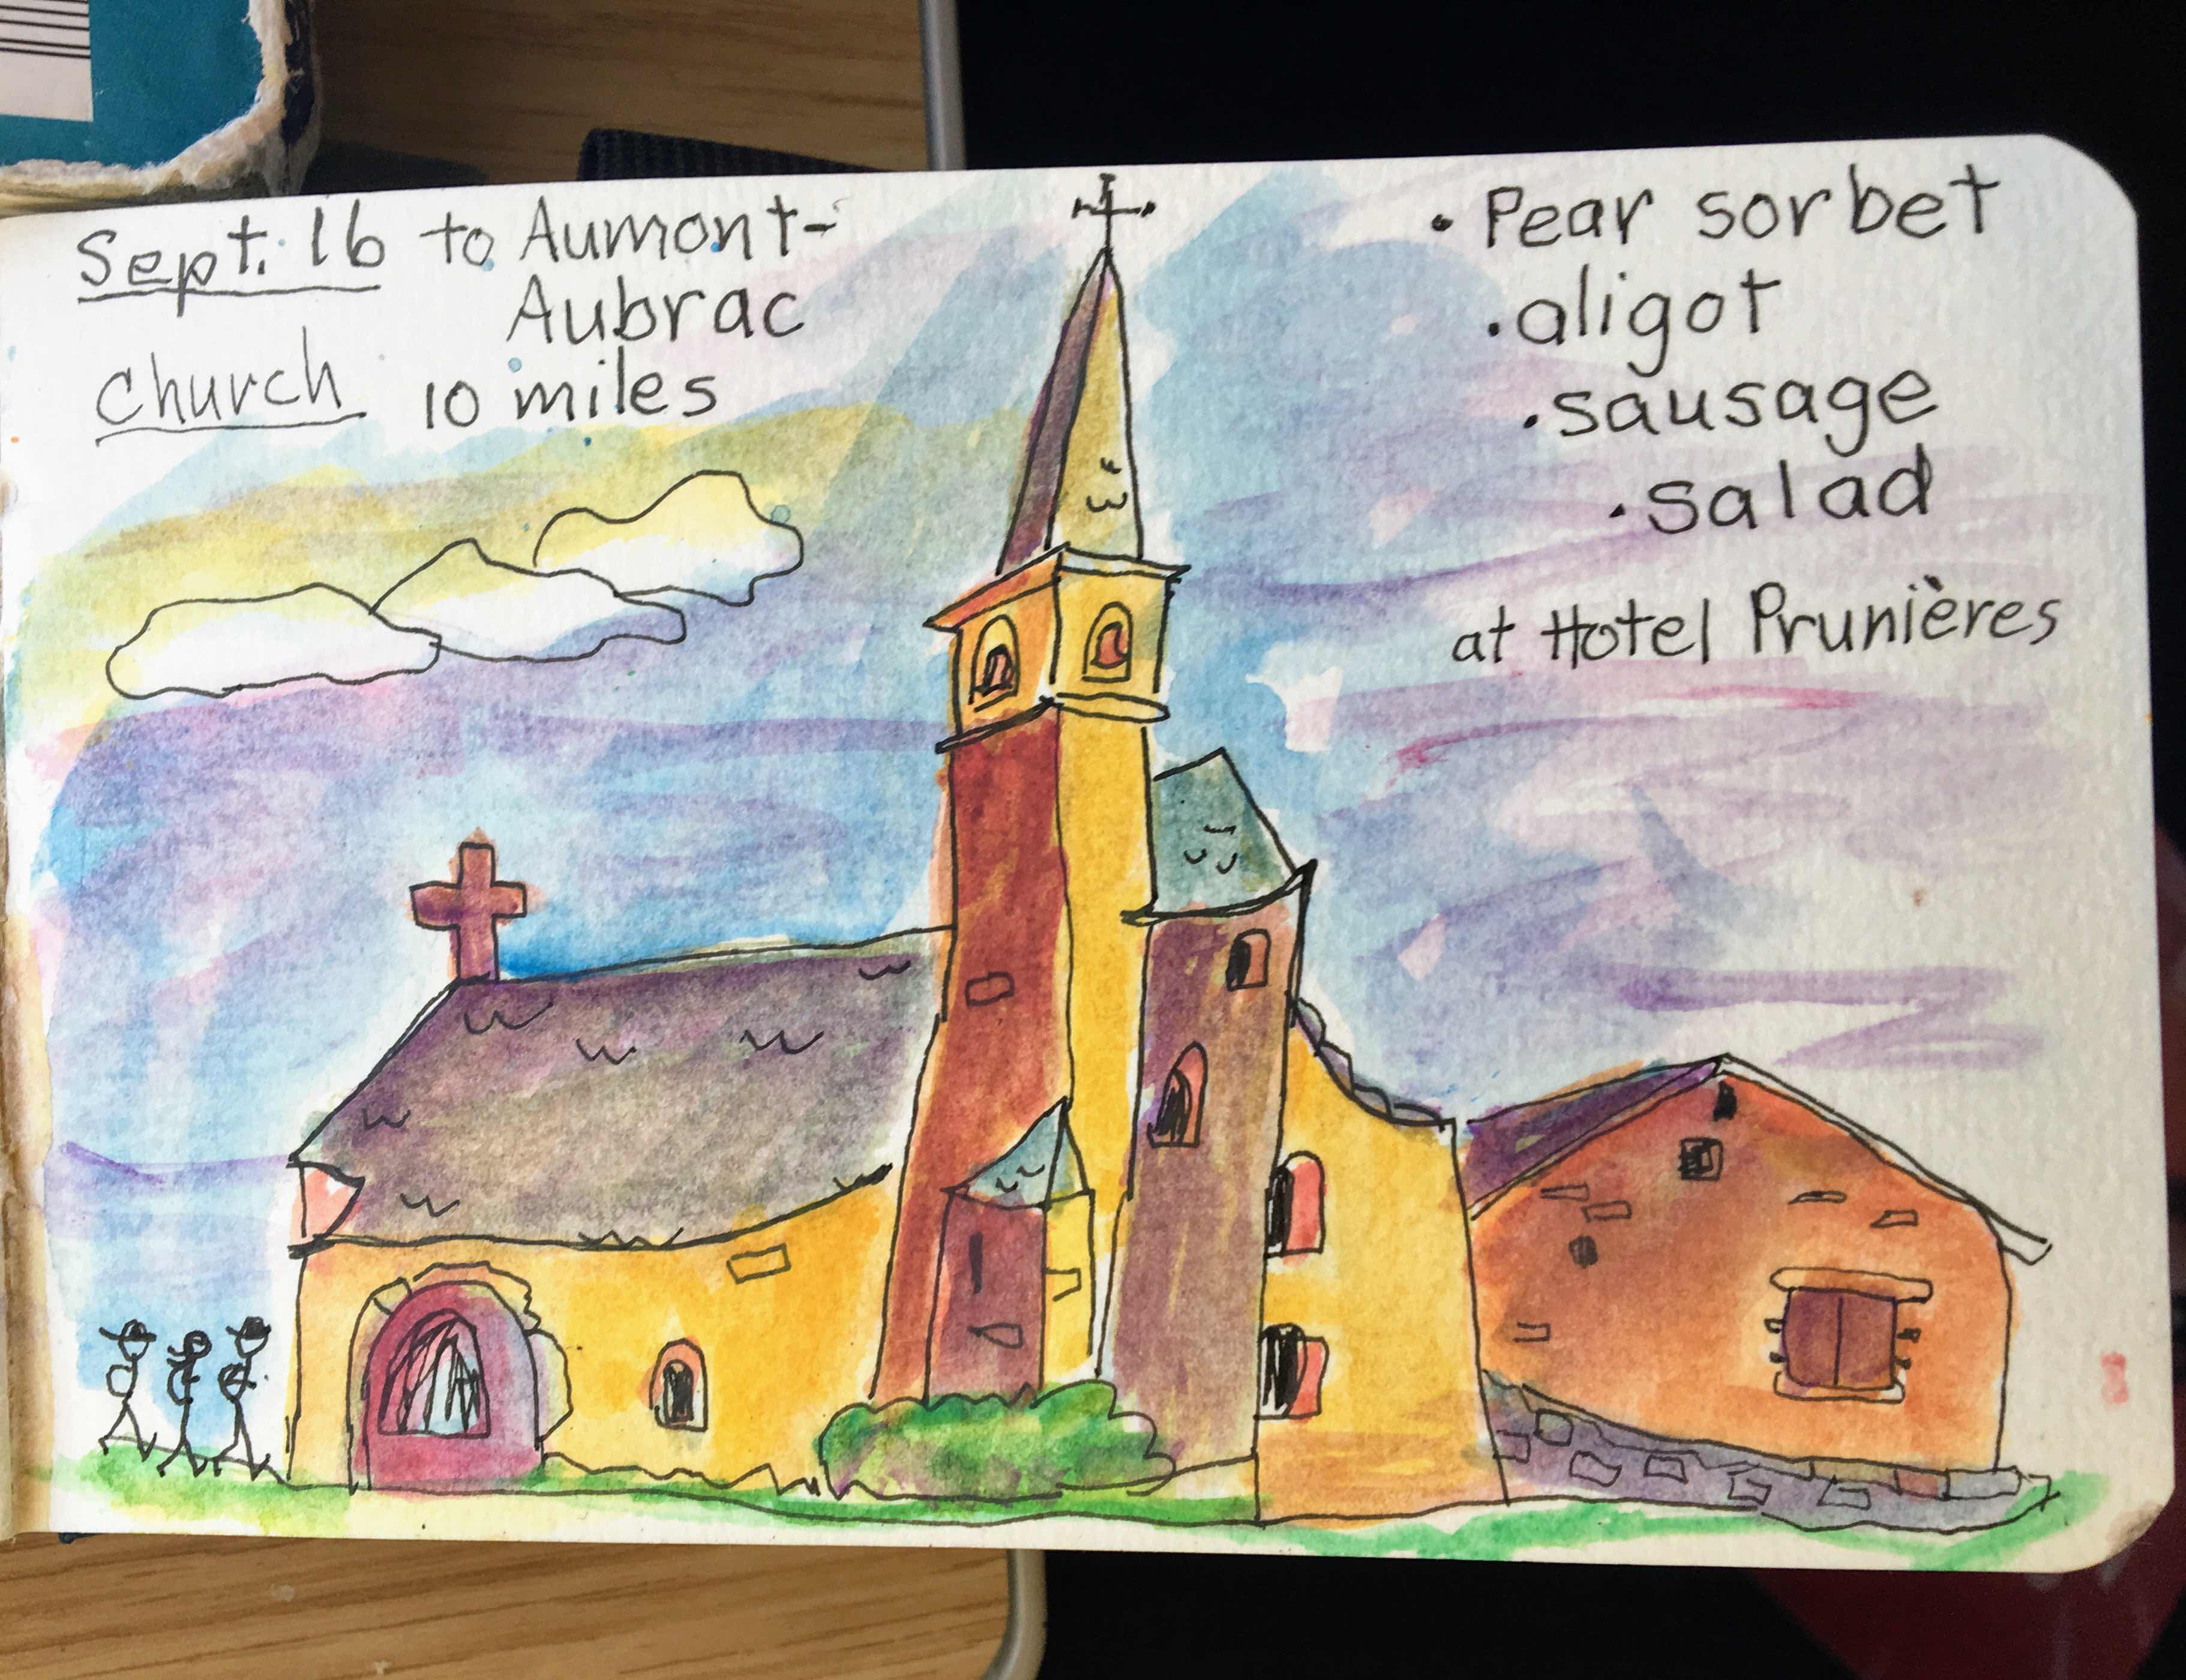 Sept. 16 to Aumont-
Aubrac
Church 10 miles
• Pear sorbet
• aligot
• sausage
• salad
at Hotel Prunières